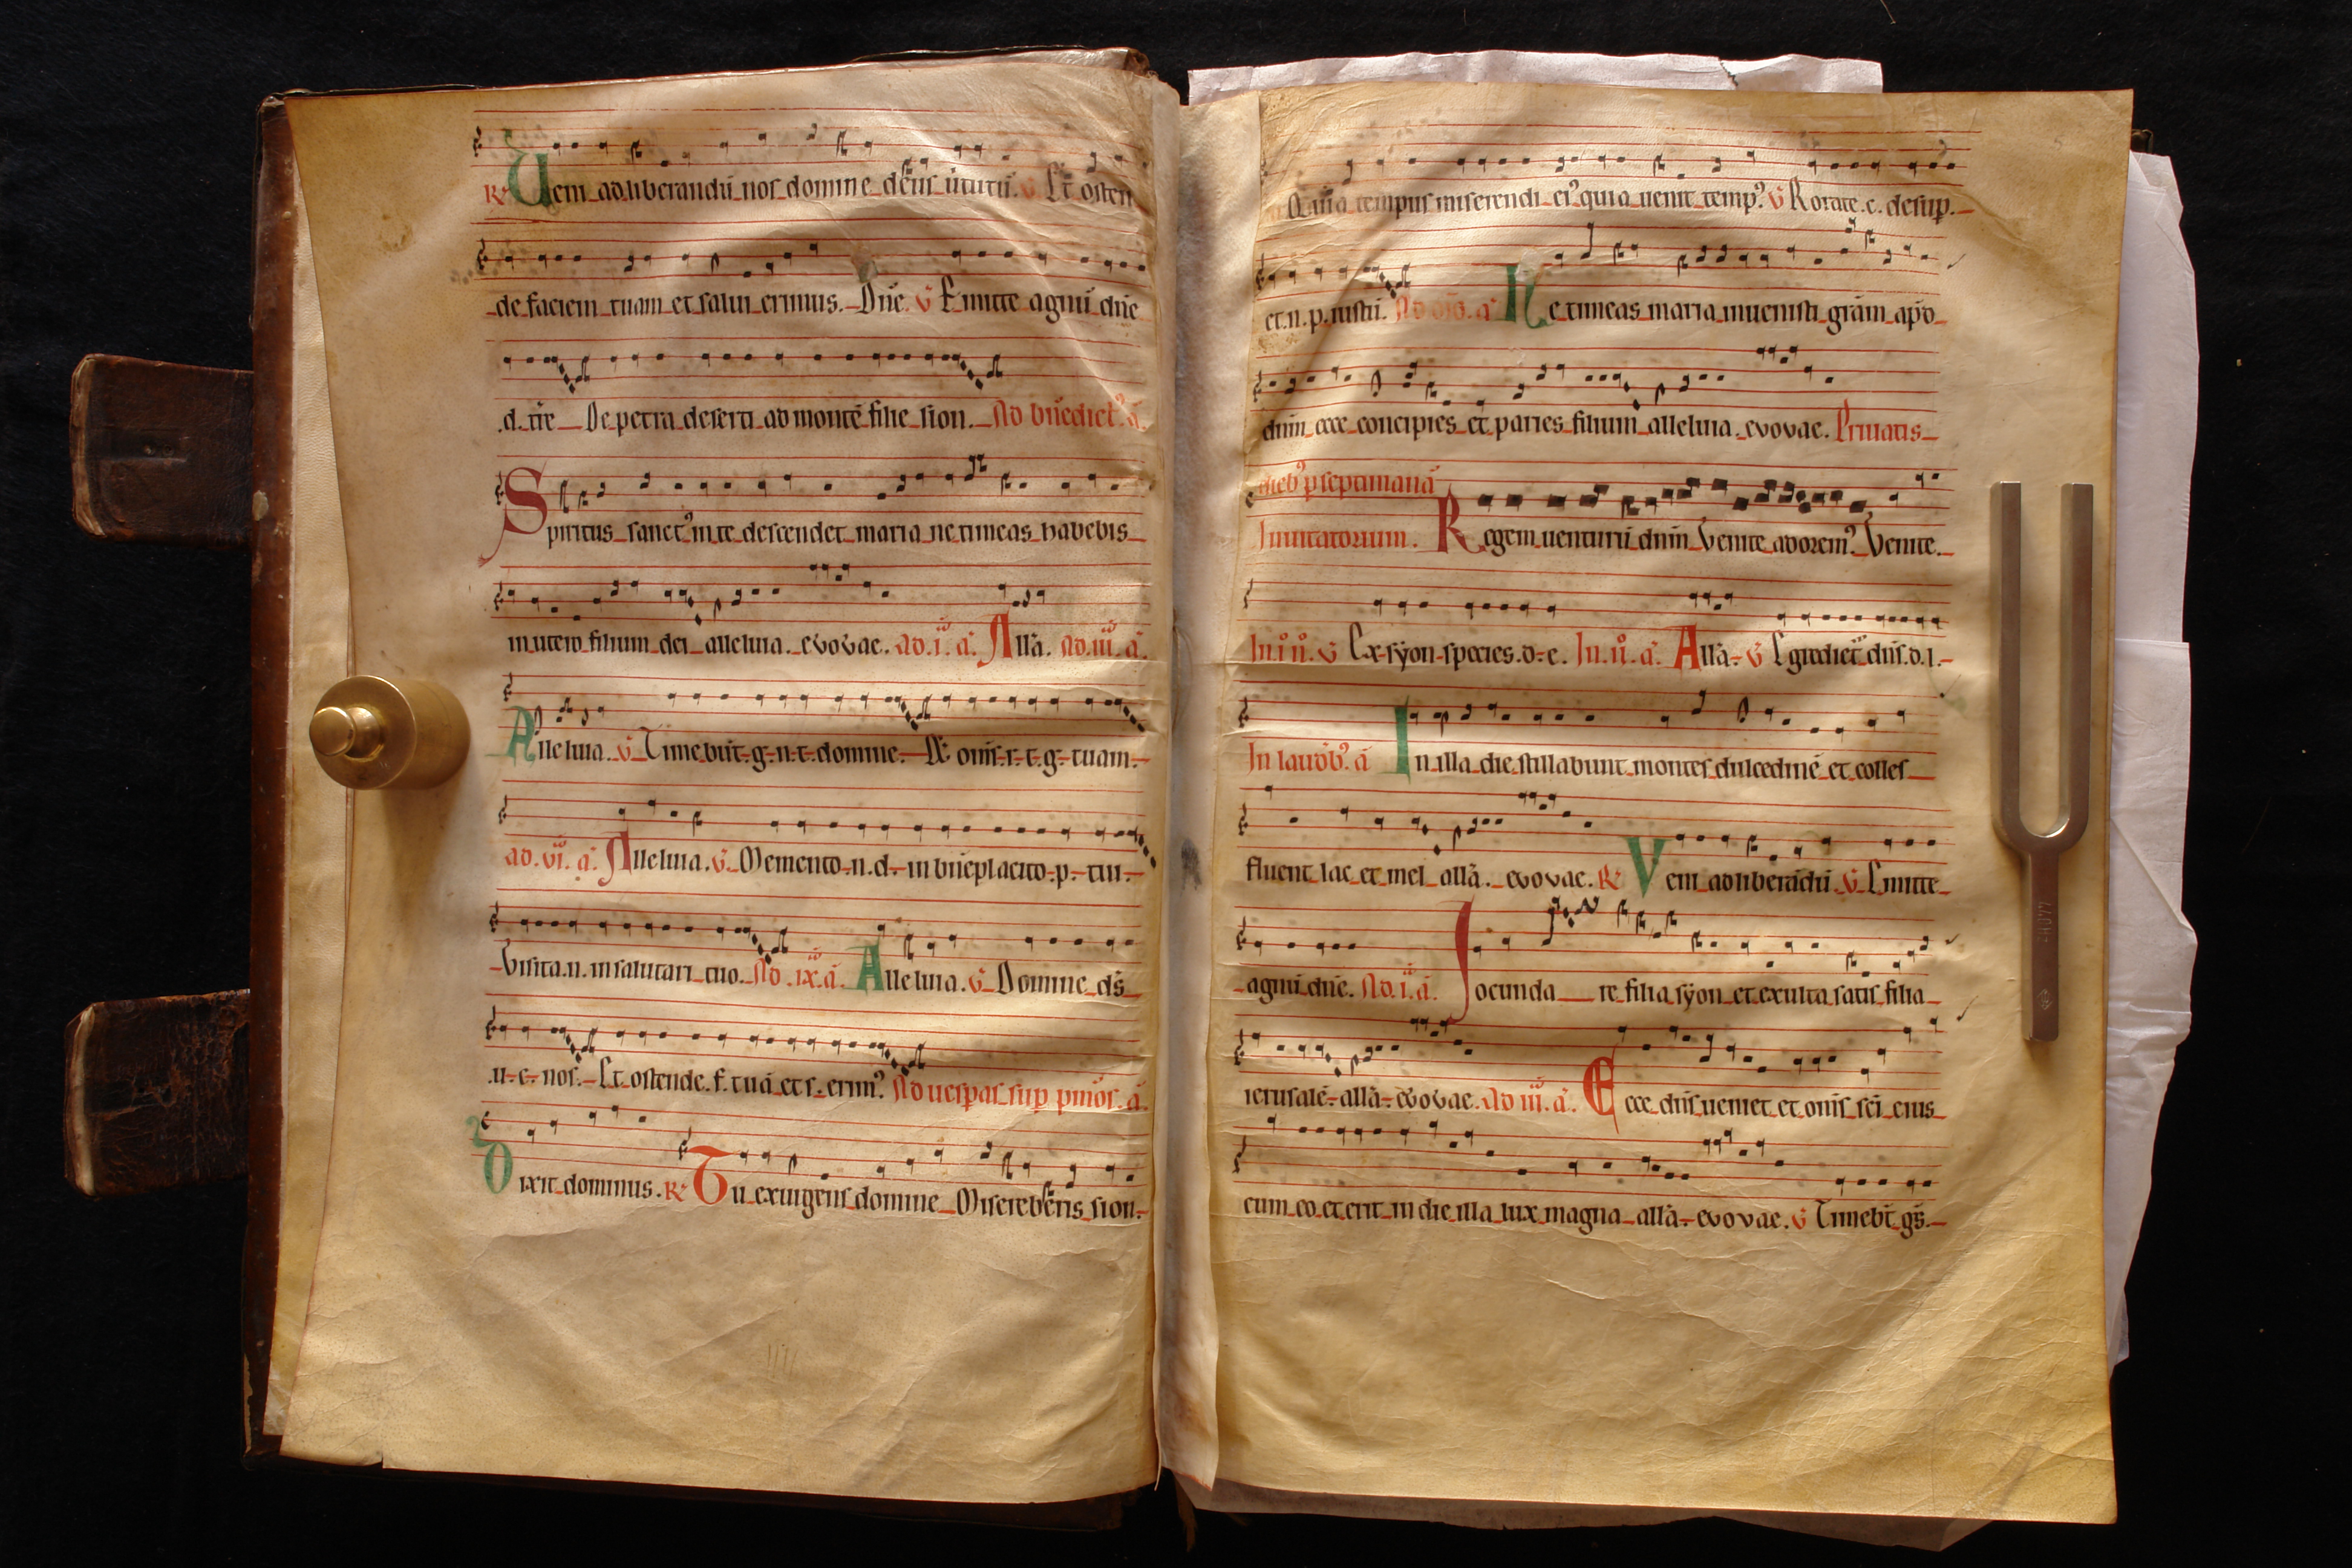 R Veni ad liberandū nos domine deus ūtutū. V Et osten
de faciem tuam et salui erimus. Dn̄e. V Emitte agnū dn̄e
.d. tr̄e De petra deserti ad montē filie sion. Ad bn̄edict᷒ a͂.
Spiritus sanct᷒ in te descendet maria ne timeas habebis
in utero filium dei alleluia. evovae. ad .i. a͂. All̄a. ad .iii. a͂.
Alleluia. V Timebūt g. n. t. domine. Et om̄s r. t. g. tuam.
ad .vi. a͂. Alleluia. V Memento n. d. in bn̄eplacito p. tui.
Visita .n. in salutari tuo. Ad .ix. a͂. Alleluia. V Domine ds̄
.u. c. nos. Et ostende .f. tuā et s. erim᷒ Ad uesꝑas suꝑ pm̄os. a͂.
Dixit dominus. R Tu exurgens domine Misereberis sion.
Quia tempus miserendi ei᷒ quia uenit temp᷒ V Rorate .c. desuꝑ.
et .n. p. iustū. a͂ Ne timeas maria inuenisti grām apd
dnm̄ ecce concipies et paries filium alleluia. evovae. Priuatis
dieb᷒ ꝑ septimanā
Inuitatorium. Regem uenturū dnm̄ Venite adorem᷒ Venite.
In .i. n̊. V Ex syon species .d. e. In .ii. a͂. All̄a. V Egrediet᷒ dn̄s .d. l.
In laudib᷒ a͂ In illa die stillabunt montes dulcedinē et colles
fluent lac et mel all̄a. evovae. R Veni ad liberādū V Emitte
agnū dn̄e. Ad .i. a͂. Jocunda re filia syon et exulta satis filia
ierusalē. all̄a. evovae. Ad iii. a͂. Ecce dn̄s ueniet et om̄s sc̄i eius
cum eo et erit in die illa lux magna all̄a. evovae. V Timeb̄t gs̄.